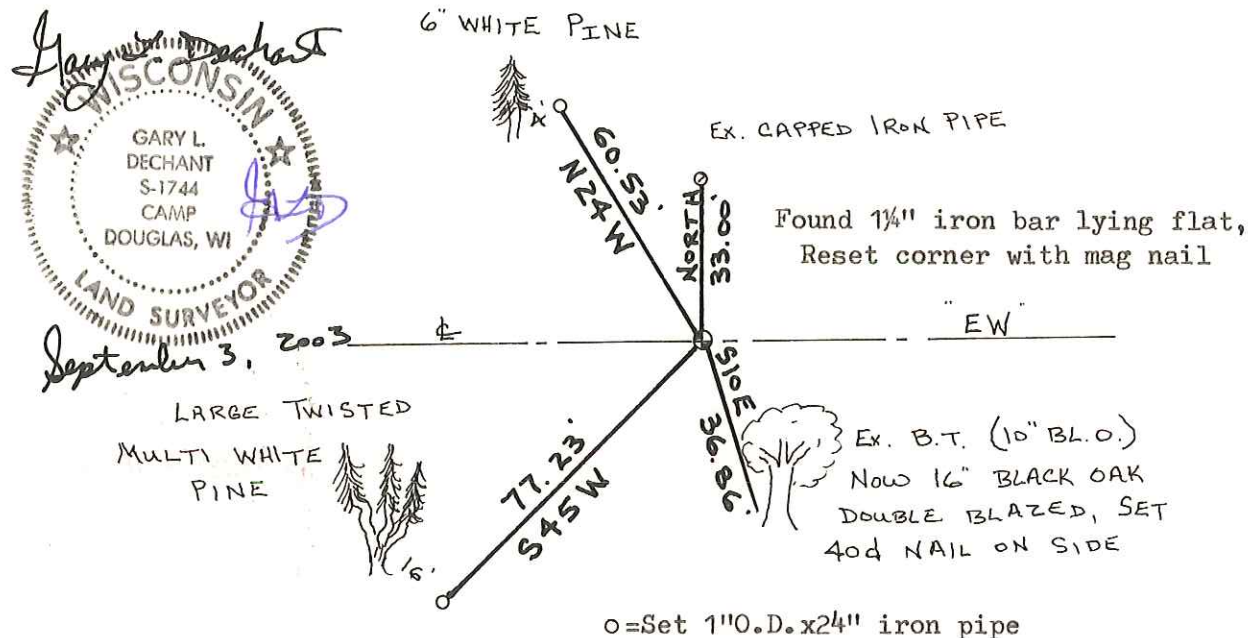 Gary L. Dechant
WISCONSIN
GARY L.
DECHANT
S-1744
CAMP
DOUGLAS, WI
LAND SURVEYOR
September 3, 2003
6" WHITE PINE
60.53'
N24W
EX. CAPPED IRON PIPE
NORTH
33.00'
Found 1¼" iron bar lying flat,
Reset corner with mag nail
℄
"EW"
S10E
36.86'
LARGE TWISTED
MULTI WHITE
PINE
77.23'
S45W
EX. B.T. (10" BL.O.)
NOW 16" BLACK OAK
DOUBLE BLAZED, SET
40d NAIL ON SIDE
o=Set 1"O.D.x24" iron pipe